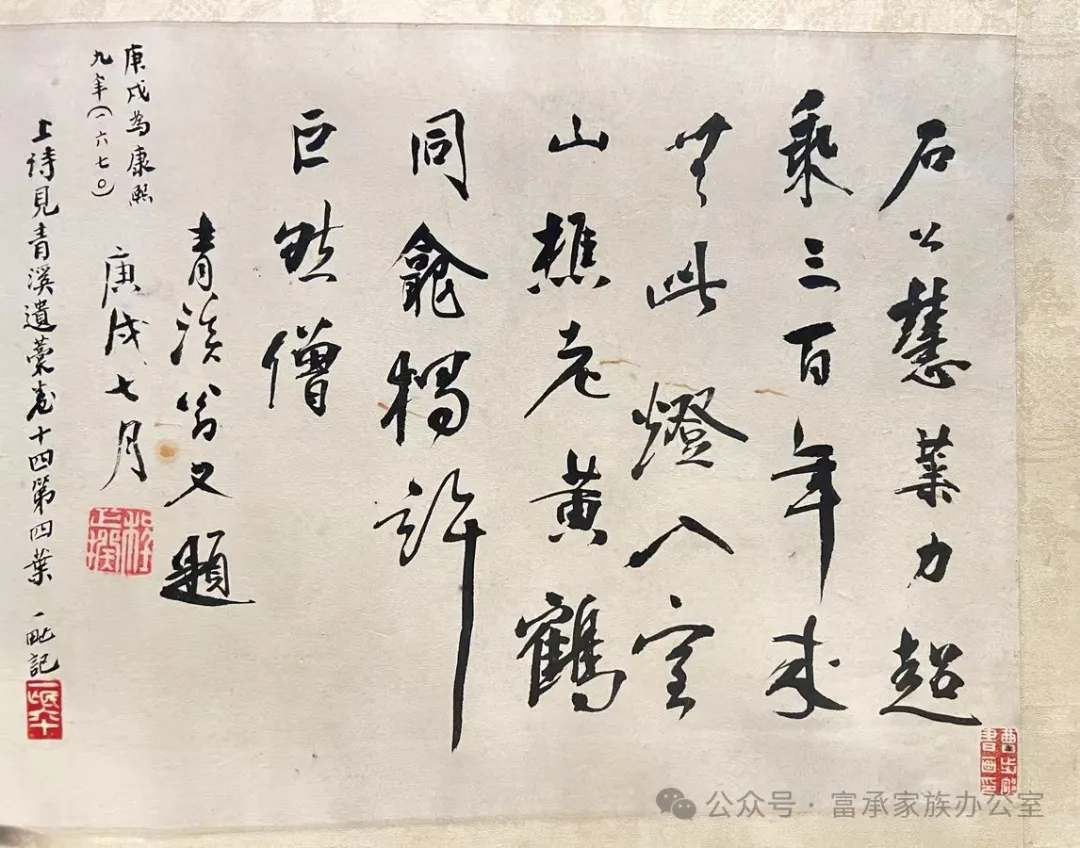 石公慧業力超
乘三百年來
無此燈入室
山樵老黃鶴
同龕獨許
巨然僧
青溪翁又題
庚戌七月
程正揆
庚戌為康熙
九年(一六七〇)
上詩見青溪遺藁卷十四第四葉 一氓記
公众号·富承家族办公室